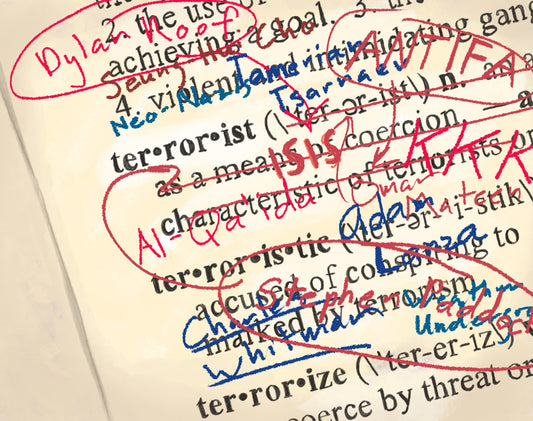 2. the use of
Dylan Roof
achieving a goal. 3. the
Seung Hui Cho
4. violent and intimidating gang
Tamerlan
Tsarnaev
ANTIFA
Neo-Nazis
ter•ror•ist (\'ter-ər-ist\) n. an a
as a means of coercion.
ISIS
characteristic of terrorists or
KKK
Al-Qaida
Omar
Mateen
Adam
Lanza
ter•ror•is•tic (\'ter-ər-i-stik\
accused of conspiring to
Stephen Paddock
marked by terrorism
Charles
Whitman
Weather
Underground
ter•ror•ize (\'ter-er-iz\)
coerce by threat or